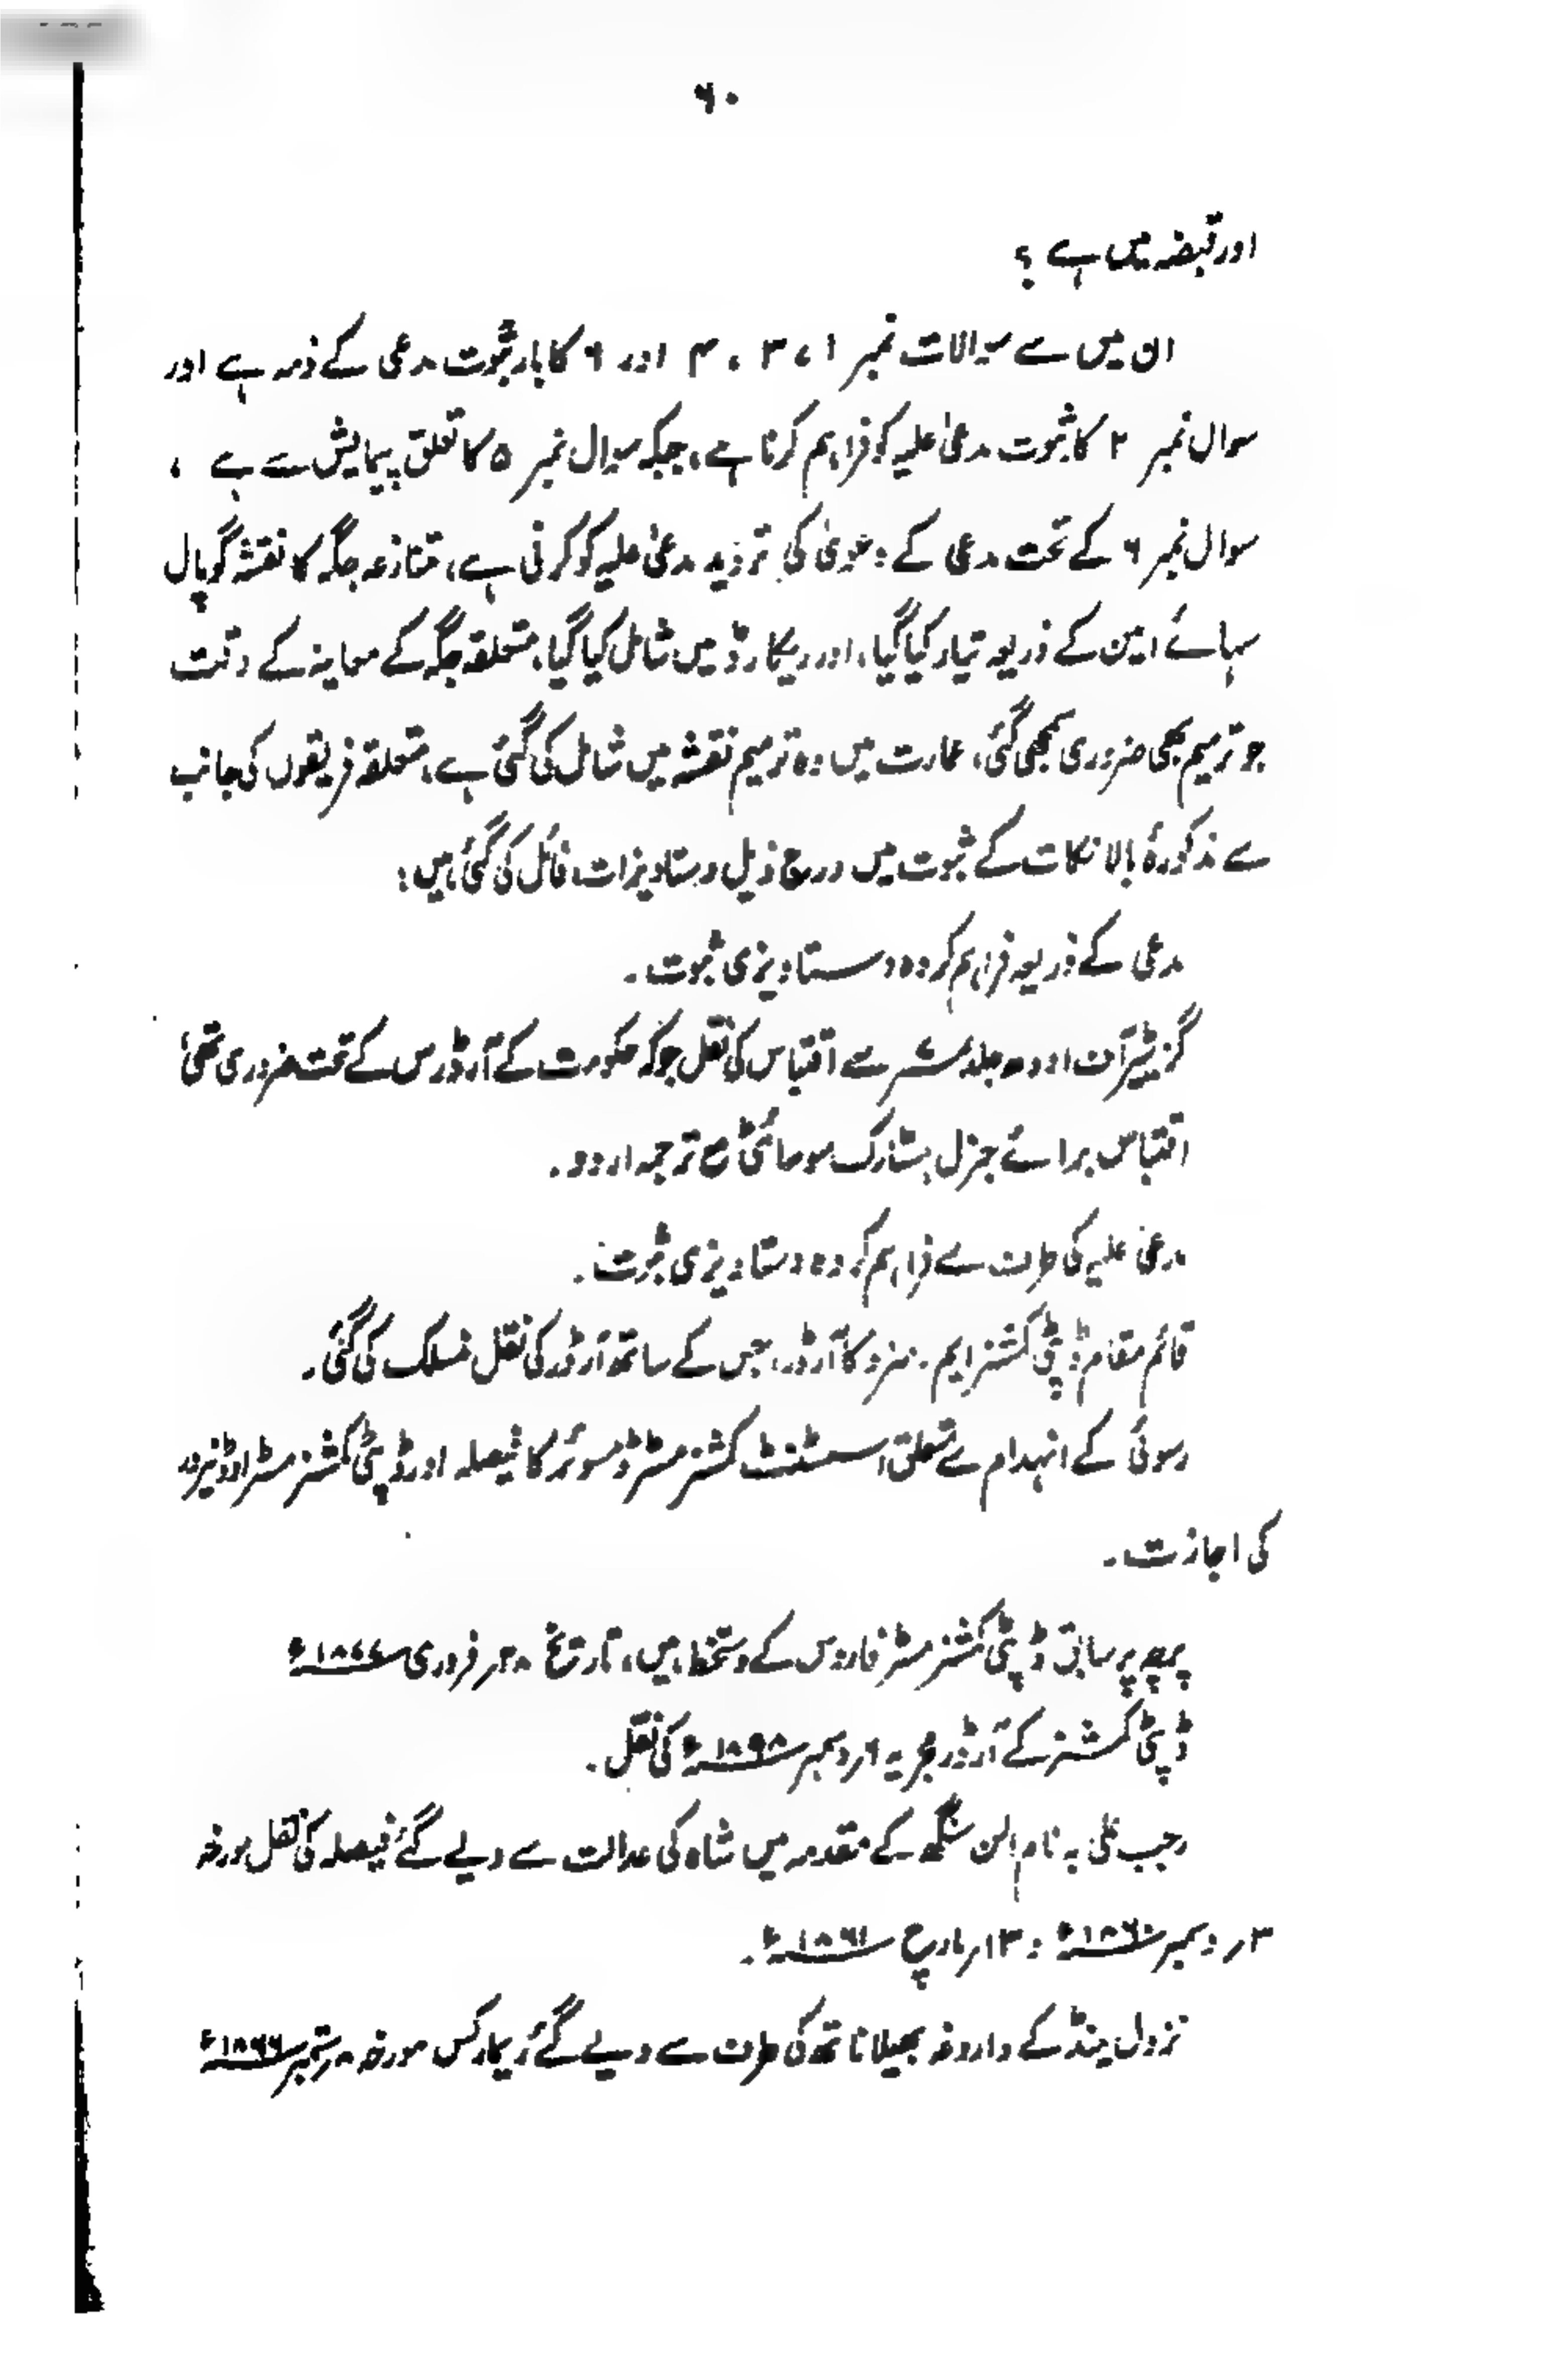 ۶۰
اور قبضہ میں ہے ؟
ان میں سے سوالات نمبر ۱، ۳ ، ۴ اور ۶ کا بار ثبوت مدعی کے ذمہ ہے اور
سوال نمبر ۲ کا ثبوت مدعیٰ علیہ کو فراہم کرنا ہے، جبکہ سوال نمبر ۵ کا تعلق پیمایش سے ہے ،
سوال نمبر ۶ کے تحت مدعی کے دعویٰ کی تردید مدعیٰ علیہ کو کرنی ہے، متنازعہ جگہ کا نقشہ گوپال
سہائے امین کے ذریعہ تیار کیا گیا، اور ریکارڈ میں شامل کیا گیا، متعلقہ جگہ کے معاینہ کے وقت
جو ترمیم بھی ضروری سمجھی گئی، عمارت میں وہ ترمیم نقشہ میں شامل کی گئی ہے، متعلقہ فریقوں کی جانب
سے مذکورۂ بالا نکات کے ثبوت میں درج ذیل دستاویزات فائل کی گئی ہیں :
مدعی کے ذریعہ فراہم کردہ دستاویزی ثبوت ۔
گزیٹیر آف اودھ جلد سے اقتباس کی نقل جو کہ حکومت کے آرڈرس کے تحت ضروری تھی
اقتباس برائے جنرل ہسٹارک سوسائٹی مع ترجمہ اردو ۔
مدعیٰ علیہ کی طرف سے فراہم کردہ دستاویزی ثبوت ۔
قائم مقام ڈپٹی کمشنر ایم ۔ منرو کا آرڈر، جس کے ساتھ آرڈر کی نقل منسلک کی گئی ۔
رسوئی کے انہدام سے متعلق اسسٹنٹ کمشنر مسٹر ڈمسوئر کا فیصلہ اور ڈپٹی کمشنر مسٹر
کی اجازت ۔
پرچہ پر سابق ڈپٹی کمشنر مسٹر فاربس کے دستخط ہیں، تاریخ ۲۸ر فروری ۱۸۷۷ء
ڈپٹی کمشنر کے آرڈر مجریہ ۶ر دسمبر ۱۸۹۸ء کی نقل ۔
رجب علی بہ نام سنگھ کے مقدمہ میں شاہ کی عدالت سے دیے گئے فیصلہ کی نقل مورخہ
۳ر دسمبر ۱۸۶۰ء و ۱۳ر مارچ ۱۸۶۱ء ۔
نزول لینڈ کے داروغہ بھیلا ناتھ کی طرف سے دیے گئے ریمارکس مورخہ ۸ر ستمبر ۱۸۶۶ء